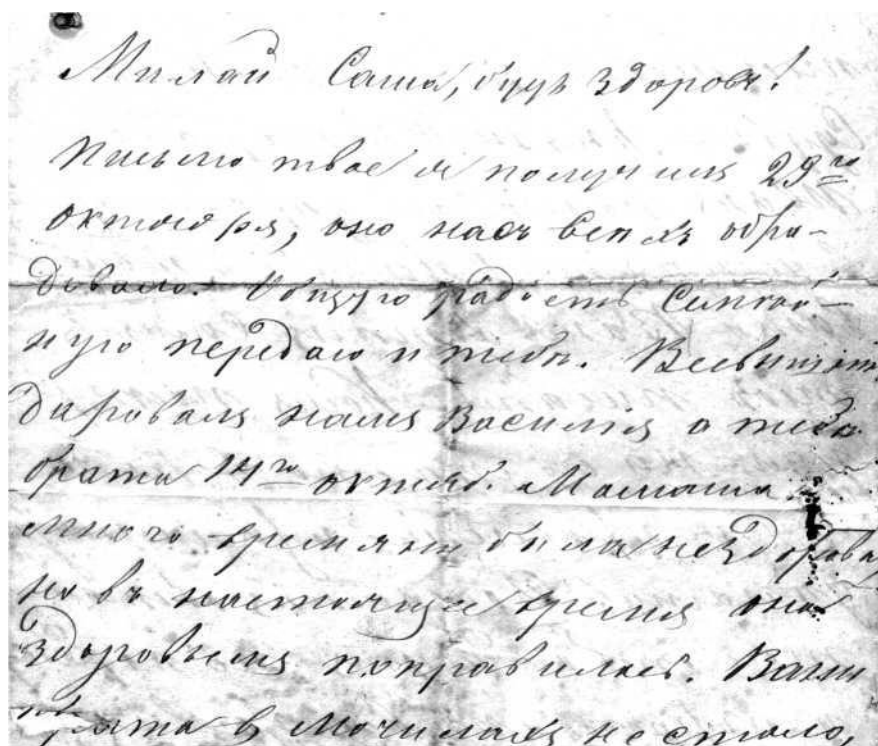 Милай Саша, будь здоровъ!
Письмо твое я получилъ 29го
октября, оно насъ всехъ обра-
довало. Общую радость Семей-
ную передаю и тебѣ. Всевышній
даровалъ намъ Василія а тебѣ
брата 14го октяб. Мамаша
много времяни была нездорова,
но въ настоящее время она
здоровьемъ поправилась. Вани
брата в Мочилахъ не стало,